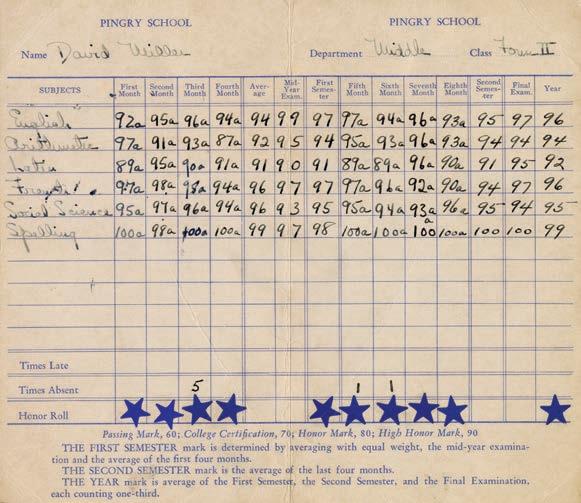 PINGRY SCHOOL PINGRY SCHOOL
Name David Miller Department Middle Class Form II
SUBJECTS First Month Second Month Third Month Fourth Month Aver-age Mid-Year Exam. First Semes-ter Fifth Month Sixth Month Seventh Month Eighth Month Second Semes-ter Final Exam. Year
English 92a 95a 96a 94a 94 99 97 97a 94a 96a 93a 95 97 96
Arithmetic 97a 91a 93a 87a 92 95 94 95a 93a 96a 93a 94 94 94
Latin 89a 95a 90a 91a 91 90 91 89a 89a 96a 90a 91 95 92
French 97a 98a 98a 94a 96 97 97 97a 96a 92a 90a 94 97 96
Social Science 95a 97a 96a 94a 96 93 95 95a 94a 93a 96a 95 94 95
Spelling 100a 98a 100a 100a 99 97 98 100a 100a 100a 100a 100 100 99
Times Late
Times Absent 5 1 1
Honor Roll
Passing Mark, 60; College Certification, 70; Honor Mark, 80; High Honor Mark, 90
THE FIRST SEMESTER mark is determined by averaging with equal weight, the mid-year examina-
tion and the average of the first four months.
THE SECOND SEMESTER mark is the average of the last four months.
THE YEAR mark is average of the First Semester, the Second Semester, and the Final Examination,
each counting one-third.